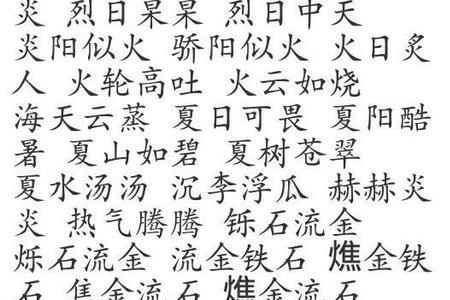 炎 烈日杲杲 烈日中天
炎阳似火 骄阳似火 火日炙
人 火轮高吐 火云如烧
海天云蒸 夏日可畏 夏阳酷
暑 夏山如碧 夏树苍翠
夏水汤汤 沉李浮瓜 赫赫炎
炎 热气腾腾 铄石流金
烁石流金 流金铁石 燋金铁
石 焦金流石 燋金流石